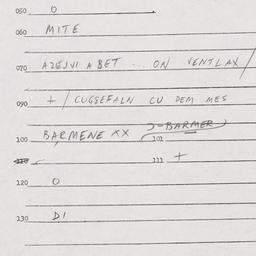 050 O
060 MITE
070 AZEJVI A BET ... ON VENTLAX /
090 + / CUGSEFALN CU DEM MES
100 BARMENE XX 101 -BARMER
110 111 +
120 O
130 DI